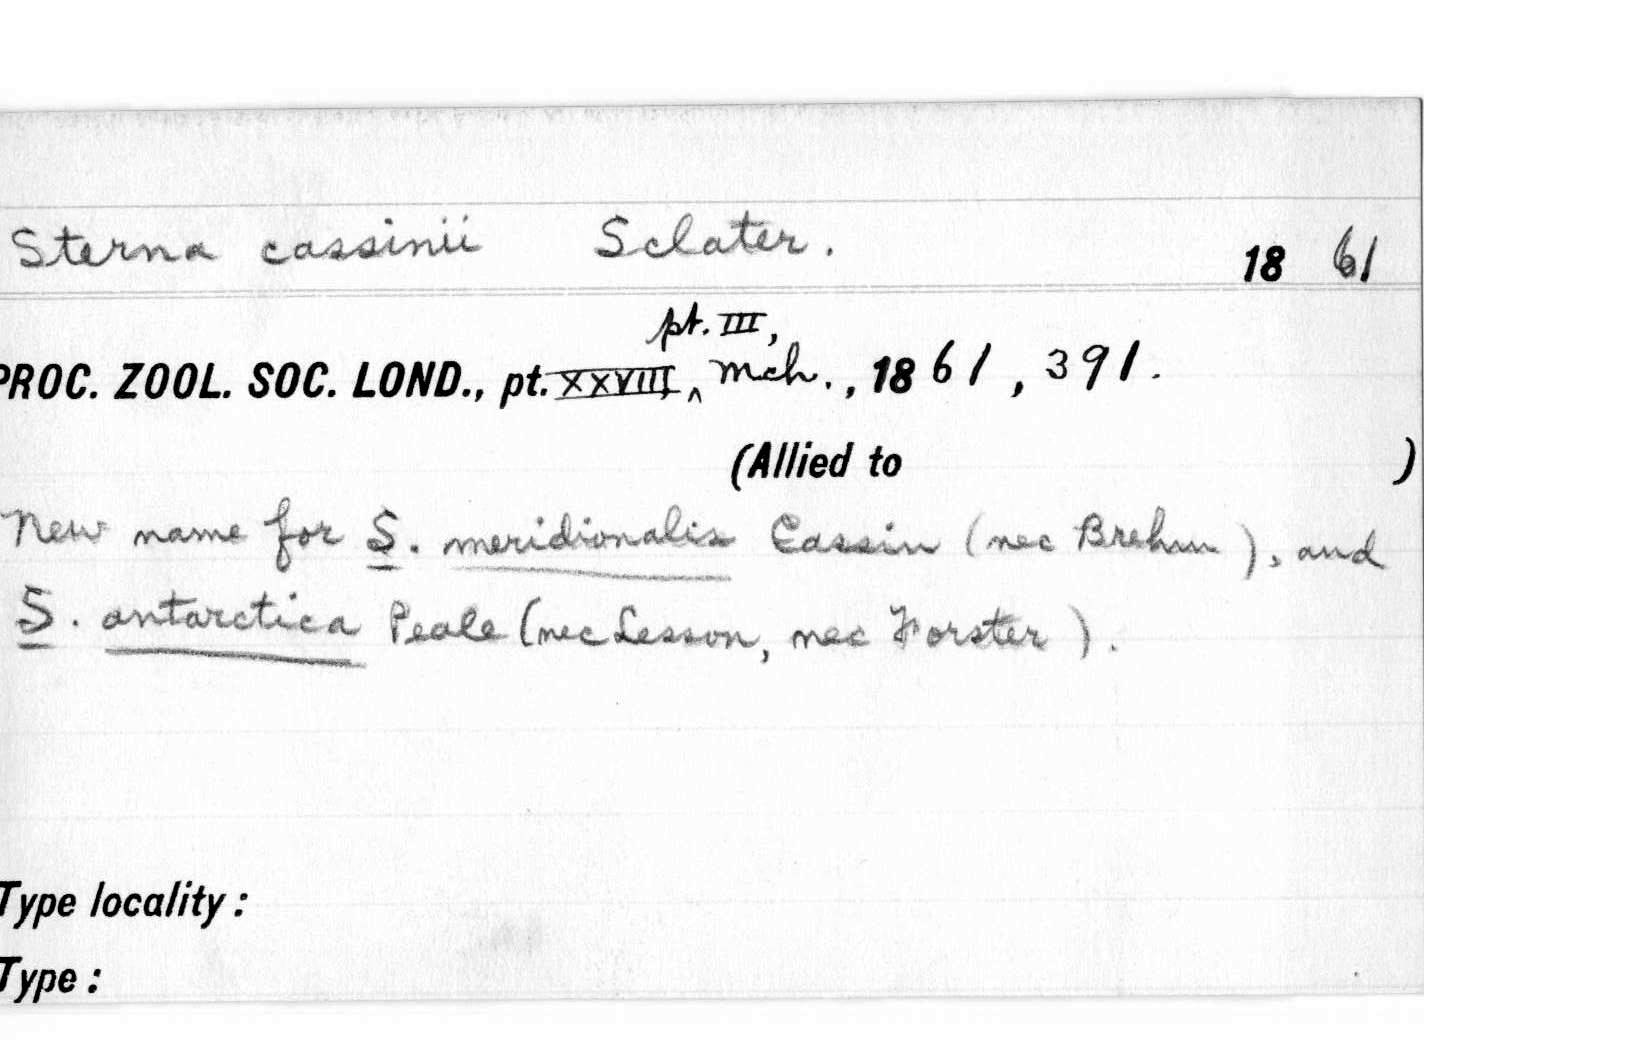 Sterna cassinii Sclater. 1861
pt. III,
PROC. ZOOL. SOC. LOND., pt. XXVIII, ^ Mch., 1861, 391.
(Allied to )
New name for S. meridionalis Cassin (nec Brehm), and
S. antarctica Peale (nec Lesson, nec Forster).
Type locality:
Type: